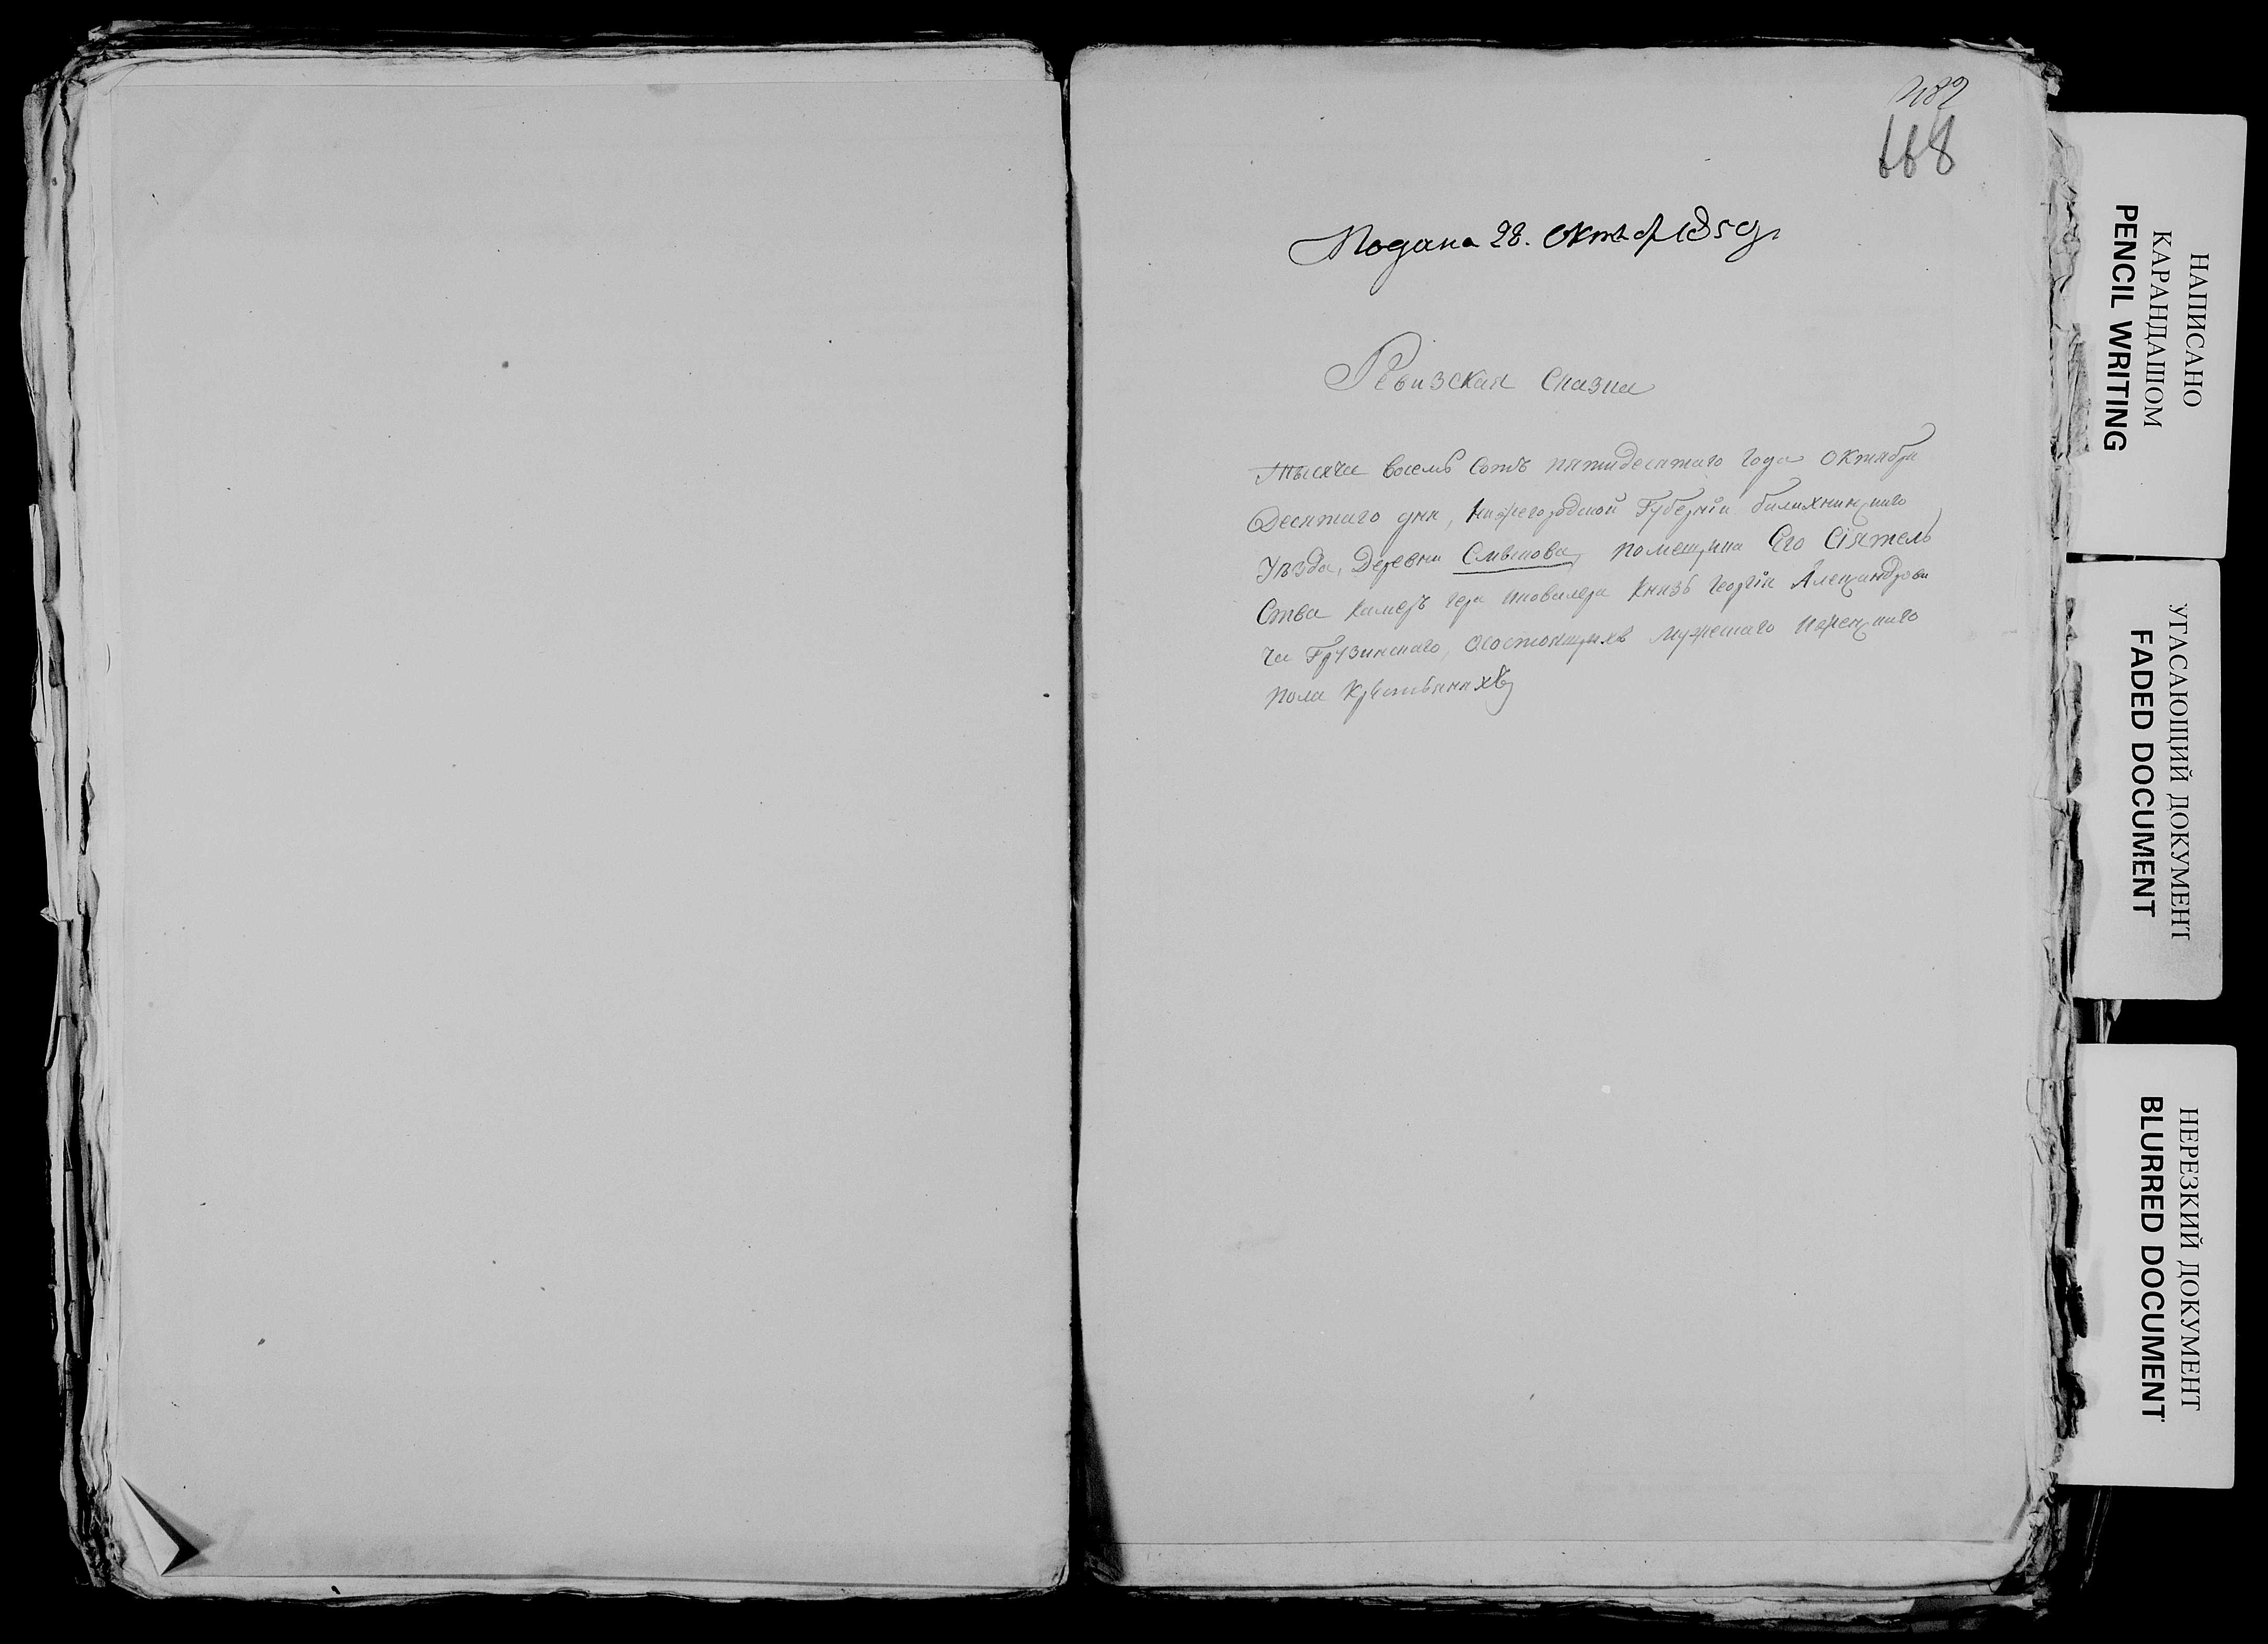 482
668
Подана 28. Октяб 1850 г.
Ревизская Сказка
Тысяча восемь сотъ пятидесятаго года Октября
Десятаго дня, Нижегородской Губерніи балахнинскаго
Уѣзда, Деревни помещика Его Сіятель
Ства Камеръ гера Кавалера Князь Георгія Александрови
ча Грузинскаго, осостоящихъ мужескаго иженскаго
пола Крестьянахъ
НАПИСАНО
КАРАНДАШОМ
PENCIL WRITING
УГАСАЮЩИЙ ДОКУМЕНТ
FADED DOCUMENT
НЕРЕЗКИЙ ДОКУМЕНТ
BLURRED DOCUMENT